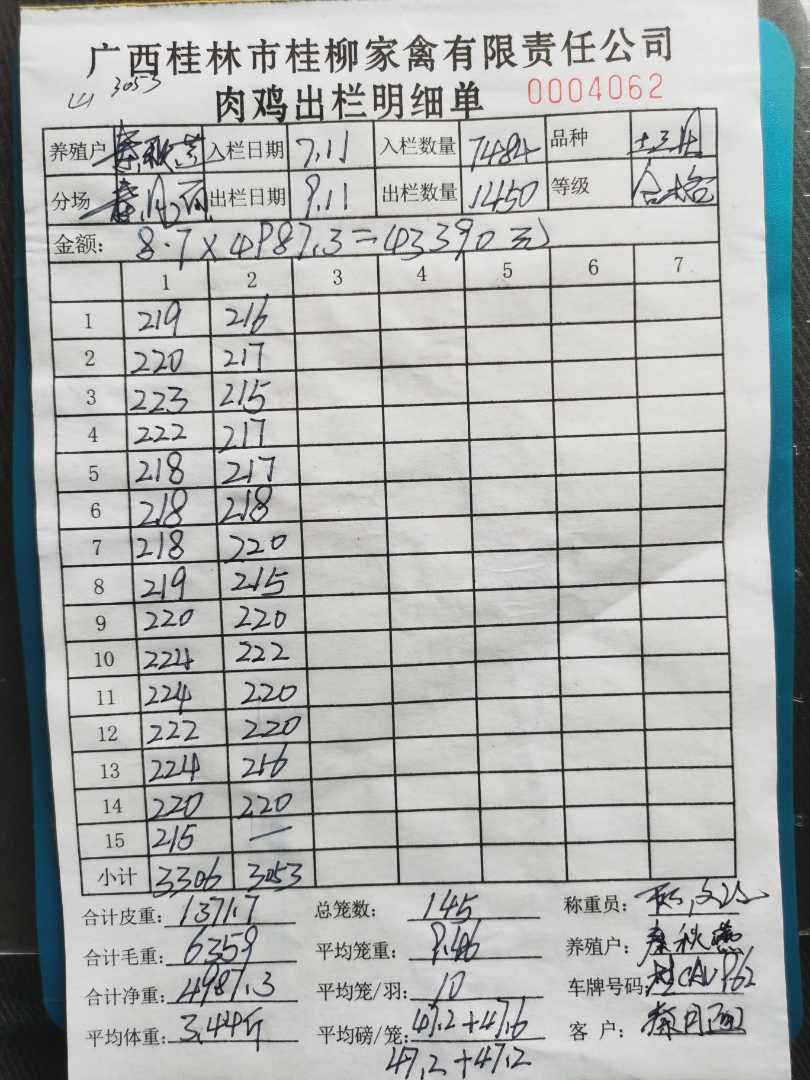 广西桂林市桂柳家禽有限责任公司
3053
肉鸡出栏明细单 0004062
养殖户 入栏日期 7.11 入栏数量 7484 品种 土三月
分场 出栏日期 9.11 出栏数量 1450 等级 合格
金额: 8.7×4987.3=43390元
1 2 3 4 5 6 7
1 219 216
2 220 217
3 223 215
4 222 217
5 218 217
6 218 218
7 218 220
8 219 215
9 220 220
10 224 222
11 224 220
12 222 220
13 224 216
14 220 220
15 215 —
小计 3306 3053
合计皮重: 1371.7 总笼数: 145 称重员:
合计毛重: 6359 平均笼重: 9.46 养殖户: 秦秋
合计净重: 4987.3 平均笼/羽: 10 车牌号码:
平均体重: 3.44斤 平均磅/笼: 47.2+47.6 客户: 秦月
47.2+47.2